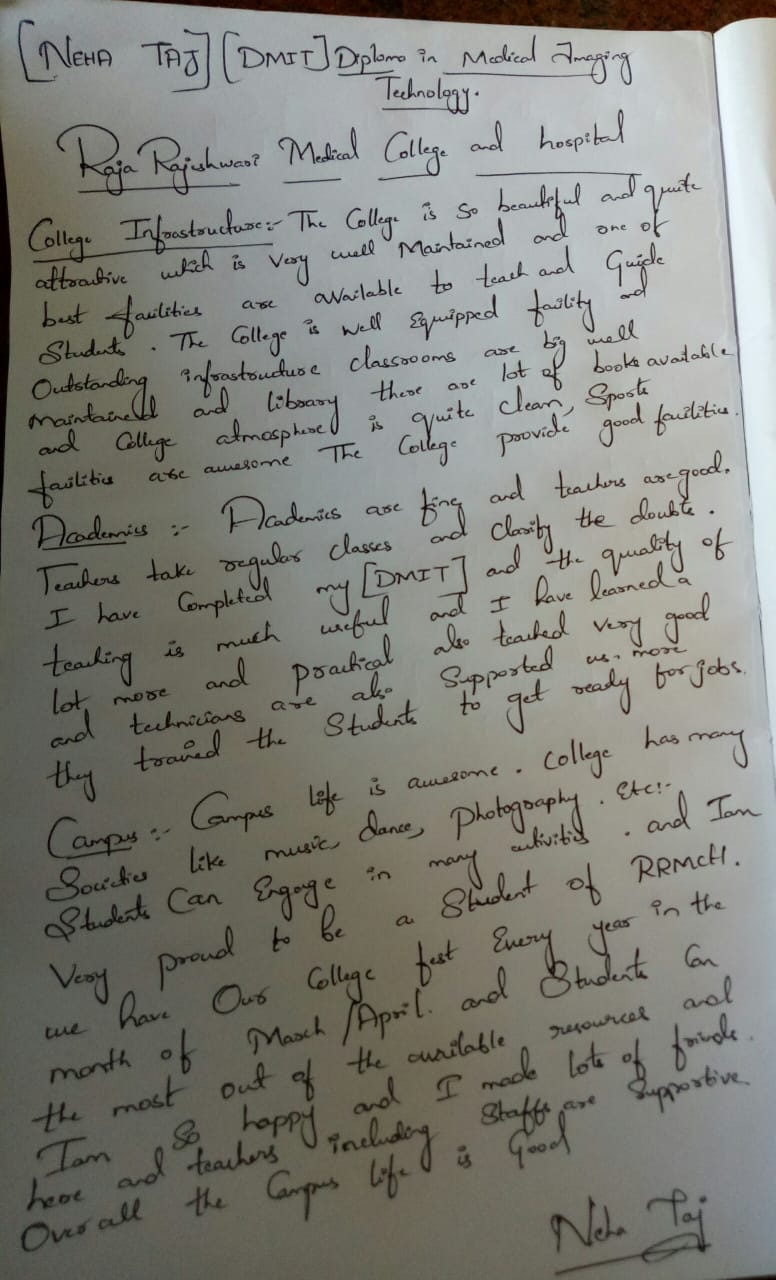 [NEHA TAJ] [DMIT] Diploma in Medical Imaging
Technology.
Raja Rajeshwari Medical College and hospital
College Infrastructure:- The College is so beautiful and quite
attractive which is Very well Maintained and one of
best facilities are available to teach and Guide
Students. The College is well Equipped facility and
Outstanding infrastructure classrooms are big well
maintained and library there are lot of books available
and College atmosphere is quite clean, Sports
facilities are awesome The College provide good facilities.
Academics :- Academics are fine and teachers are good.
Teachers take regular classes and clarify the doubts.
I have Completed my [DMIT] and the quality of
teaching is much useful and I have learned a
lot more and practical also teached very good
and technicians are also Supported us. more
they trained the Students to get ready for jobs.
Campus :- Campus life is awesome. College has many
Societies like music, dance, Photography. Etc:-
Students Can Engage in many activities. and Iam
Very proud to be a Student of RRMCH.
we have Our College fest Every year in the
month of March/April. and Students Can
the most out of the available resources and
Iam so happy and I made lots of friends.
here and teachers including Staffs are Supportive
Over all the Campus life is Good
Neha Taj